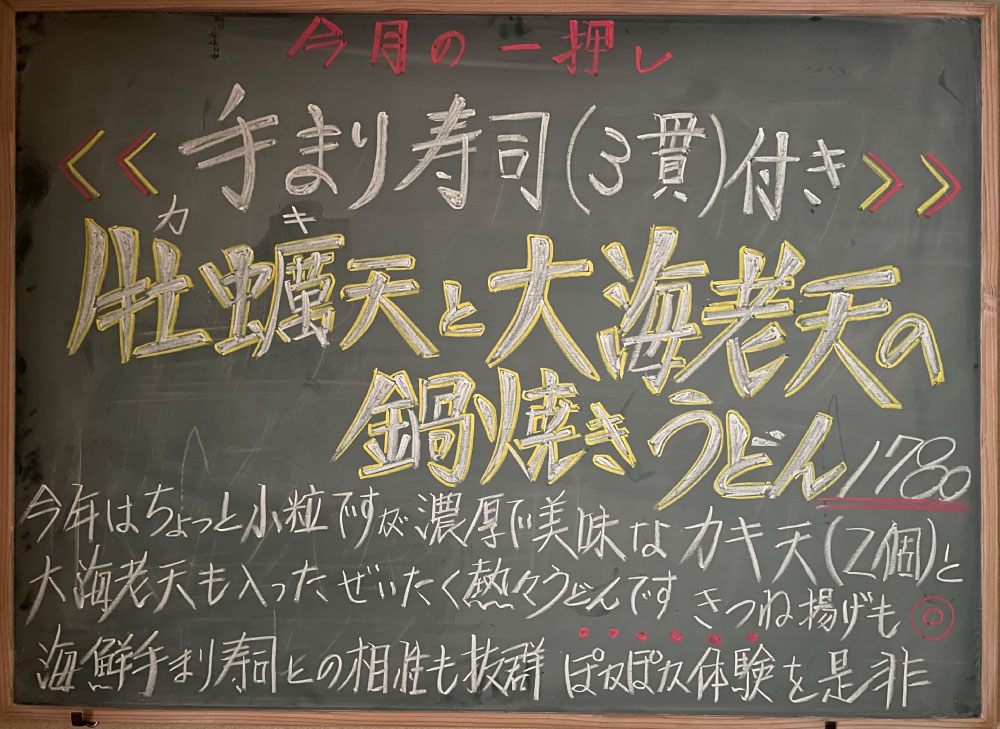 今月の一押し
<< 手まり寿司(3貫)付き >>
カキ
牡蠣天と大海老天の
鍋焼きうどん 1780
今年はちょっと小粒ですが濃厚で美味なカキ天(2個)と
大海老天も入ったぜいたく熱々うどんです きつね揚げも◎
海鮮手まり寿司との相性も抜群 ぽかぽか体験を是非